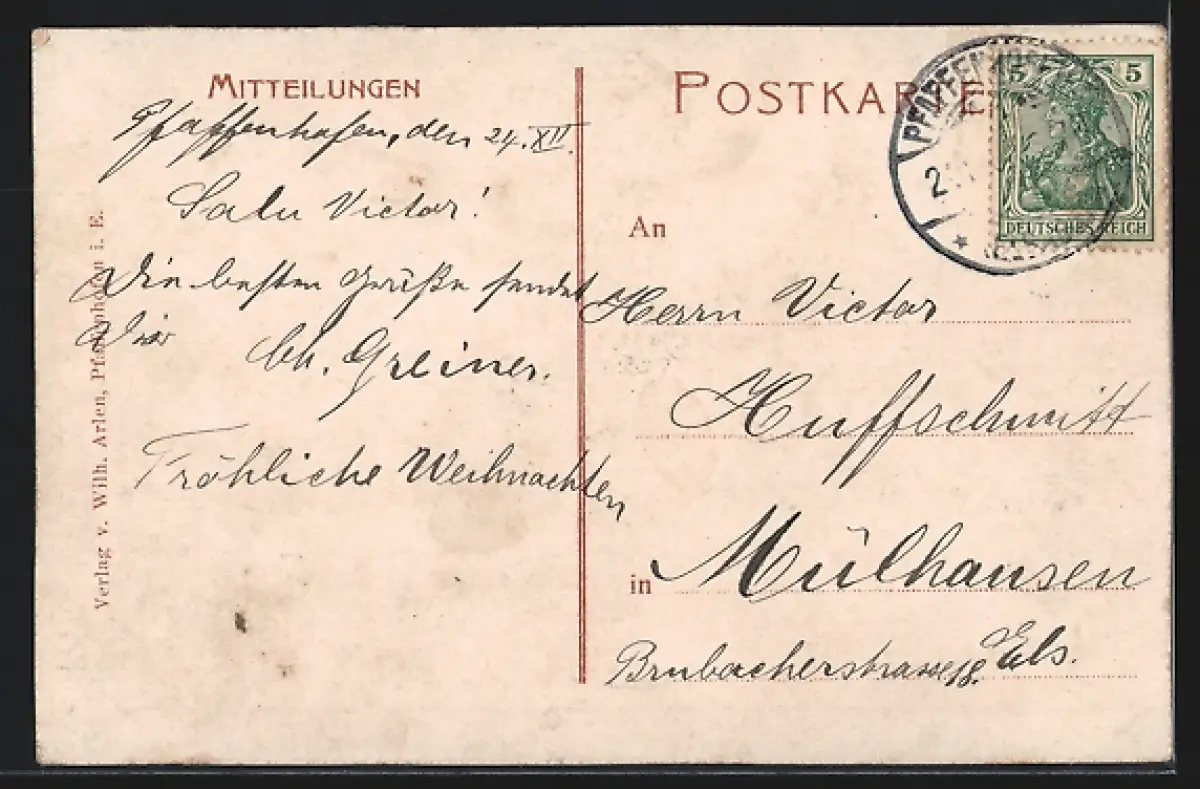 MITTEILUNGEN
Pfaffenhofen, den 24. XII.
Salu Victor!
Die besten Grüße sendet
Dir
Ch. Greiner.
Fröhliche Weihnachten
Verlag v. Wilh. Arlen, Pfaffenhofen i. E.
POSTKARTE
PFAFFENHOFEN
5 5
DEUTSCHES REICH
An
Herrn Victor
Huffschmitt
in Mülhausen
Brubacherstrasse 18. Els.